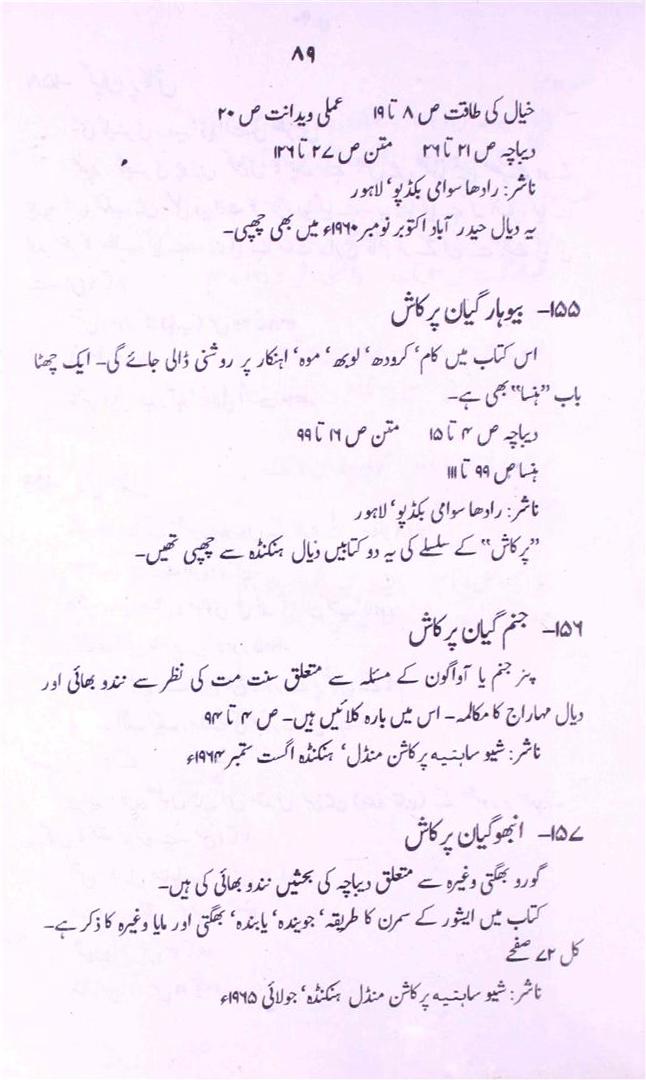 ۸۹
خیال کی طاقت ص ۸ تا ۱۹ عملی ویدانت ص ۲۰
دیباچہ ص ۲۱ تا ۲۶ متن ص ۲۷ تا ۱۲۶
ناشر: رادھا سوامی بکڈپو، لاہور
یہ دیال حیدر آباد اکتوبر نومبر ۱۹۶۰ء میں بھی چھپی۔
۱۵۵۔ بیوہار گیان پرکاش
اس کتاب میں کام، کرودھ، لوبھ، موہ، اہنکار پر روشنی ڈالی جائے گی۔ ایک چھٹا
باب "ہنسا" بھی ہے۔
دیباچہ ص ۴ تا ۱۵ متن ص ۱۶ تا ۹۹
ہنسا ص ۹۹ تا ۱۱۱
ناشر: رادھا سوامی بکڈپو، لاہور
"پرکاش" کے سلسلے کی یہ دو کتابیں دیال ہنکنڈہ سے چھپی تھیں۔
۱۵۶۔ جنم گیان پرکاش
پنر جنم یا آواگون کے مسئلہ سے متعلق سنت مت کی نظر سے نندو بھائی اور
دیال مہاراج کا مکالمہ۔ اس میں بارہ کلائیں ہیں۔ ص ۴ تا ۹۴
ناشر: شیو ساہتیہ پرکاشن منڈل، ہنکنڈہ اگست ستمبر ۱۹۶۴ء
۱۵۷۔ انبھو گیان پرکاش
گورو بھگتی وغیرہ سے متعلق دیباچہ کی بحثیں نندو بھائی کی ہیں۔
کتاب میں ایشور کے سمرن کا طریقہ، جویندہ، یابندہ، بھگتی اور مایا وغیرہ کا ذکر ہے۔
کل ۷۲ صفحے
ناشر: شیو ساہتیہ پرکاشن منڈل ہنکنڈہ، جولائی ۱۹۶۵ء